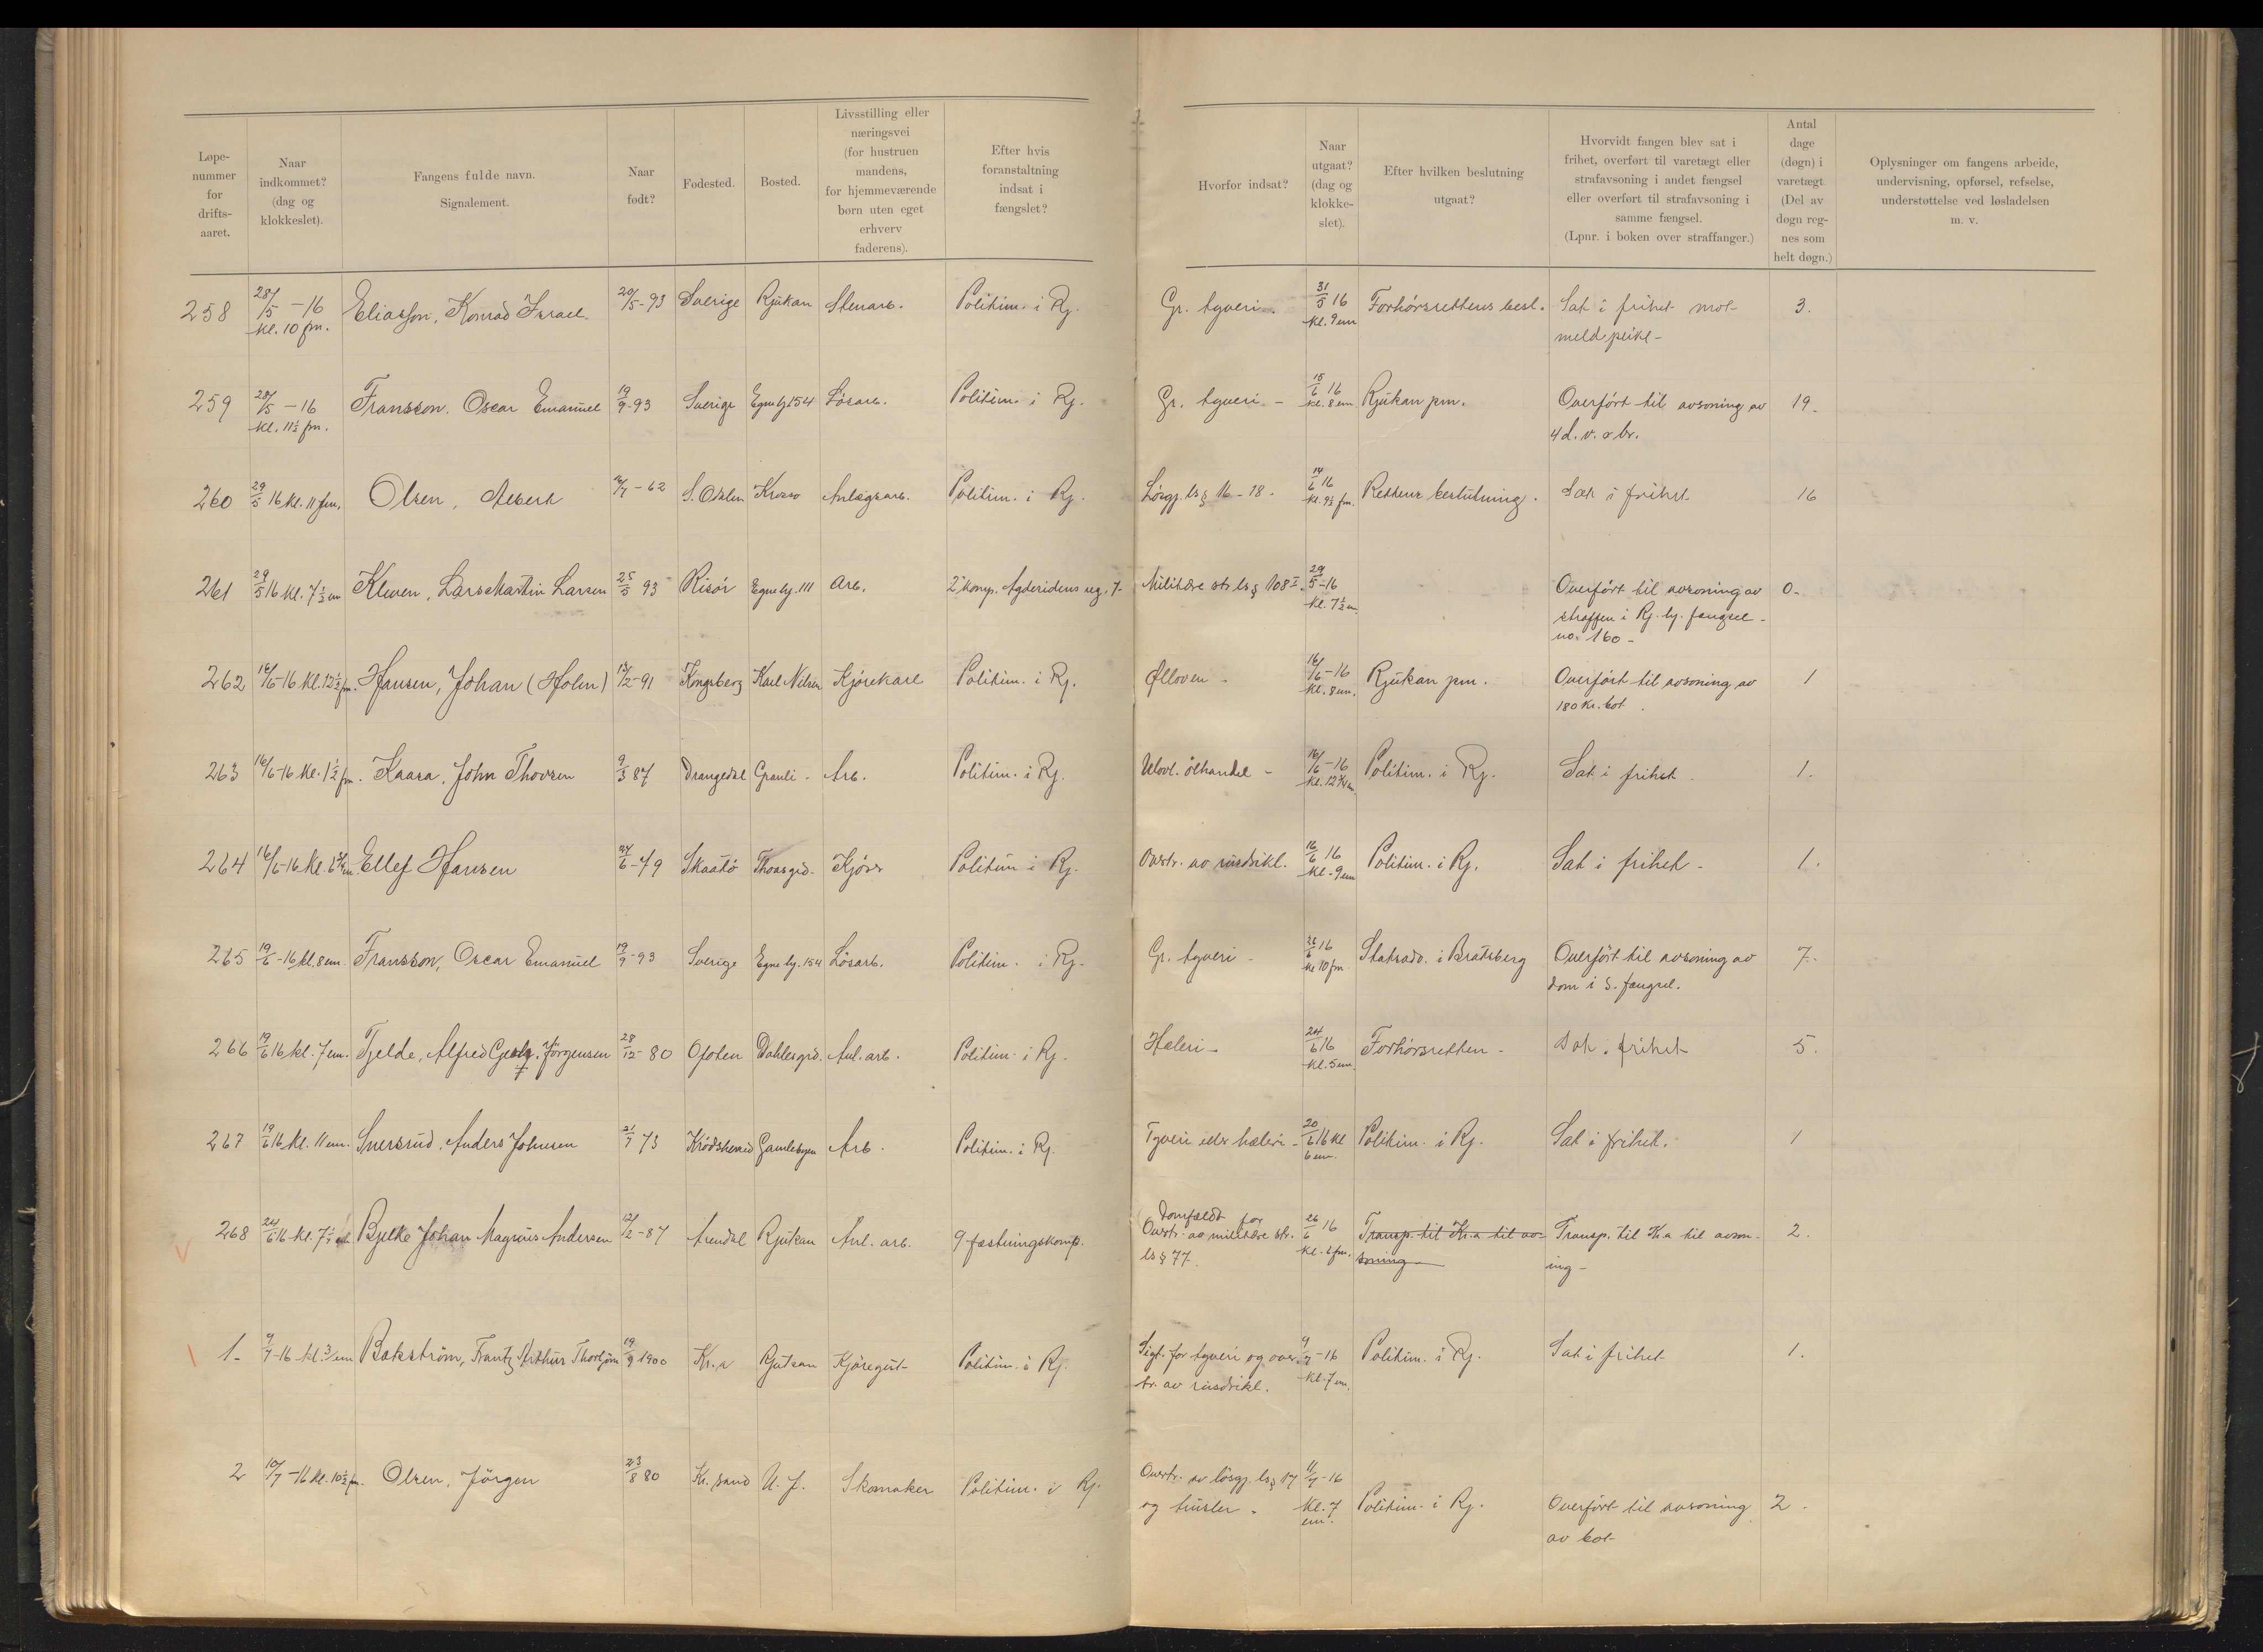 Løpe-
nummer
for
drifts-
aaret.
Naar
indkommet?
(dag og
klokkeslet).
Fangens fulde navn.
Signalement.
Naar
født?
Fødested.
Bosted.
Livsstilling eller
næringsvei
(for hustruen
mandens,
for hjemmeværende
børn uten eget
erhverv
faderens).
Efter hvis
foranstaltning
indsat i
fængslet?
Hvorfor indsat?
Naar
utgaat?
(dag og
klokke-
slet).
Efter hvilken beslutning
utgaat?
Hvorvidt fangen blev sat i
frihet, overført til varetægt eller
strafavsoning i andet fængsel
eller overført til strafavsoning i
samme fængsel.
(Lpnr. i boken over straffanger.)
Antal
dage
(døgn) i
varetægt.
(Del av
døgn reg-
nes som
helt døgn.)
Oplysninger om fangens arbeide,
undervisning, opførsel, refselse,
understøttelse ved løsladelsen
m. v.
258 28/5 - 16 Eliasson, Konrad Israel. 20/5-93 Sverige Rjukan Stenarb. Politim. i Rj. Gr. tyveri. 31/5 16 Forhørsrettens besl. Sat i frihet mot 3.
kl. 10 fm. kl. 9 em meldpeikt -
259 28/5 - 16 Fransson, Oscar Emanuel 19/9-93 Sverige Egneby 154 Løsarb. Politim. i Rj. Gr. tyveri - 15/6 16 Rjukan pm. Overført til avsoning av 19.
kl. 11½ fm. kl. 8 em 4 d. v. o br.
260 29/5 16 kl. 11 fm. Olsen, Albert /7-62 S. Odalen Krosso Anlægsarb. Politim. i Rj. Løsgj. ls § 16-18. 14/6 16 Rettens beslutning. Sat i frihet 16
kl. 9½ fm.
261 29/5 16 kl. 7½ em Kleven, Lars Martin Larsen 25/5 93 Risør Egneby. 111 Arb. 2 komp. Agdersidens reg. 7- Militære str. ls § 108 I. 29/5-16 Overført til avsoning av 0-
kl. 7½ em straffen i Rj. by. fængsel -
no. 160 -
262 16/6-16 kl. 12½ fm. Hansen, Johan (Holm) /2-91 Kongsberg Karl Nilsen Kjørekarl Politim. i Rj. Ølloven - 16/6-16 Rjukan pm. Overført til avsoning av 1
kl. 8 em. 180 kr. bot.
263 16/6-16 kl. 1½ fm. Kaasa, John Thovsen 9/3 87 Drangedal Granli - Arb. Politim. i Rj. Ulovl. ølhandel - 16/6-16 Politim. i Rj. Sat i frihet. 1.
kl. 12¾ em.
264 16/6-16 kl. em Ellef Hansen 24/6-79 Skaatø Thoasgrd. Kjørs Politim i Rj. Overtr. av rusdrikl. 16/6 16 Politim. i Rj. Sat i frihet - 1.
kl. 9 em
265 19/6-16 kl. 8 em. Fransson, Oscar Emanuel 19/9-93 Sverige Egneby. 154 Løsarb. Politim. i Rj. Gr. tyveri - 26/6 16 Statsadv. i Bratsberg Overført til avsoning av 7.
kl 10 fm dom i S. fængsel.
266 19/6 16 kl. 7 em. Tjelde, Alfred Jørgensen 28/12-80 Ofoten Dahlesgrd. Anl. arb. Politim. i Rj. Heleri - 24/6 16 Forhørsretten - Sat i frihet 5.
kl. 5 em.
267 19/6 16 kl. 11 em. Snersrud, Anders Johnsen 21/7 73 Krødsherred Gamlebyen Arb. Politim. i Rj. Tyveri eller heleri - 20/6 16 kl Politim. i Rj. Sat i frihet. 1
6 em.
268 24/6 16 kl. 7½ Bjelke Johan Magnus Andersen 12/2-87 Arendal Rjukan Anl. arb. 9 fæstningskomp. Domfældt for
Overtr. av militære str. 26/6 16 Transp. til Kr.a til av- Transp. til Kr.a til avson- 2.
ls § 77. kl. 6 fm. soning ing -
1- 9/7-16 kl. 3/ em Bakstrøm, Frantz Arthur Thorbjørn 19/9 1900 Kr.a Rjukan Kjøregut Politim. i Rj. Sigt. for tyveri og over- 9/7-16 Politim. i Rj. Sat i frihet 1.
tr. av rusdrikl. kl. 7 em.
2 10/7-16 kl. 10½ fm. Olsen, Jørgen 23/8 80 Kr.sand U. f. Skomaker Politim. i Rj. Overtr. av løsgj. ls § 17 11/7-16
og trusler - kl. 7 Politim. i Rj. Overført til avsoning 2.
em. av bot